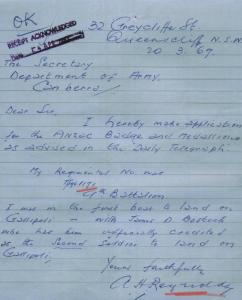 OK
32 Greycliffe St.
Queenscliff N.S.W
RECEIPT ACKNOWLEDGED
20.3.67.
The Secretary
Department of Army
Canberra
Dear Sir,
I hereby make application
for the Anzac Badge and Medallion
as advised in the Daily Telegraph.
My Regimental No. was
9th Battalion
I was in the first boat to land on
Gallipoli - with James D. Bostock
who has been officially credited
as the Second Soldier to land on
Gallipoli.
Yours faithfully
A H Reynolds